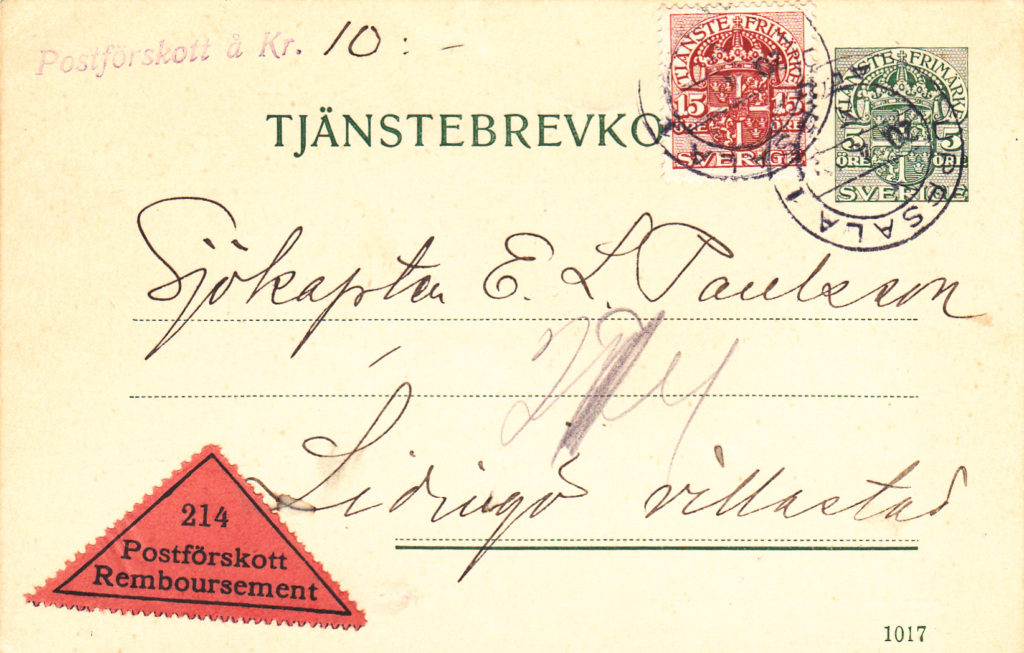 Postförskott å Kr. 10:-
TJÄNSTEBREVKO
TJÄNSTE FRIMÄRKE
15 15
ÖRE ÖRE
SVERIGE
TJÄNSTE FRIMÄRKE
5 5
ÖRE ÖRE
SVERIGE
UPSALA 1
Sjökapten E. L. Paulsson
Lidingö villastad
214
Postförskott
Remboursement
1017